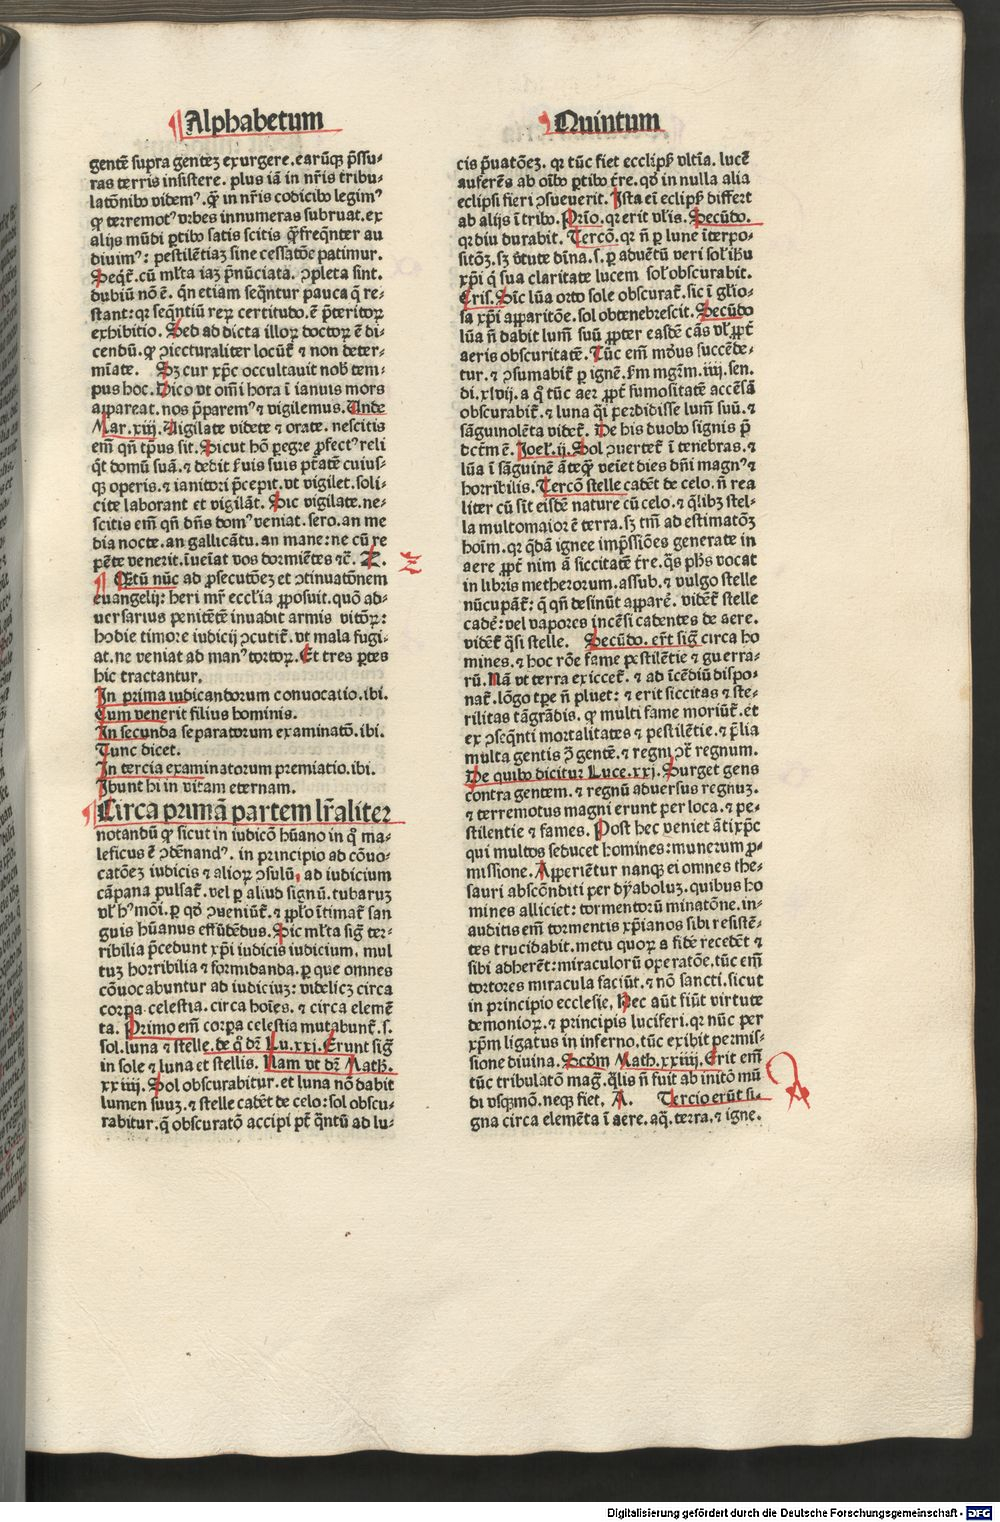 Alphabetum
gentē supra genteʒ exurgere. earūqꝫ p̄ssu-
ras terris insistere. plus iā in nr̄is tribu-
latōnibꝰ videmꝰ. qͣꝫ in nr̄is codicibꝰ legimꝰ
qꝙ terremotꝰ vrbes innumeras subruat. ex
alijs mūdi ꝑtibꝰ satis scitis qͣꝫ freqn̄ter au
diuimꝰ: pestilētiaʒ sine cessatōe patimur.
Seqt̄. cū ml̄ta iaʒ p̄nūciata. ꝯpleta sint.
dubiū nō ē. qn̄ etiam seqn̄tur pauca q̄ re-
stant: qꝛ seqn̄tiū reꝝ certitudo. ē p̄teritoꝝ
exhibitio. Sed ad dicta illoꝝ doctoꝝ ē di-
cendū. qꝙ ꝯiecturaliter locūt̄ ⁊ non deter-
mīate. Sꝫ cur xp̄c occultauit nob̄ tem-
pus hoc. Dico vt om̄i hora ī ianuis mors
appareat. nos p̄paremꝰ ⁊ vigilemus. Unde
Mar. xiij. Uigilate videte ⁊ orate. nescitis
em̄ qn̄ tp̄us sit. Sicut hō ꝑegre ꝓfectꝰ reli
qt̄ domū suā. ⁊ dedit ẜuis suis pt̄atē cuius-
qꝫ operis. ⁊ ianitori p̄cepit. vt vigilet. soli-
cite laborant et vigilāt. Sic vigilate. ne-
scitis em̄ qn̄ dn̄s domꝰ veniat. sero. an me
dia nocte. an gallicātu. an mane: ne cū re
pēte venerit. īueīat vos dormiētes ⁊c̄. Z.
Z
Etū nūc ad ꝓsecutōeʒ et ꝯtinuatōnem
euangelij: heri mr̄ eccl̄ia ꝓposuit. quō ad-
uersarius penitētē inuadit armis vitōꝝ:
hodie timore iudicij ꝯcutit̄. vt mala fugi-
at. ne veniat ad manꝰ tortoꝝ. Et tres ꝑtes
hic tractantur.
In prima iudicandorum conuocatio. ibi.
Cum venerit filius hominis.
In secunda separatorum examinatō. ibi.
Tunc dicet.
In tercia examinatorum premiatio. ibi.
Ibunt hi in vitam eternam.
Circa primā partem lr̄aliter
notandū qꝙ sicut in iudicō hūano in qͦ ma-
leficus ē ꝯdēnandꝰ. in principio ad cōuo-
catōeʒ iudicis ⁊ alioꝝ ꝯsulū, ad iudicium
cāpana pulsat̄. vel ꝑ aliud signū. tubaruʒ
vl̄ hꝰmōi. ꝑ qd̄ ꝯueniūt̄. ⁊ ꝓpl̄o ītimat̄ san
guis hūanus effūdēdus. Sic ml̄ta siḡ ter-
ribilia p̄cedunt xp̄i iudicis iudicium. mul
tuʒ horribilia ⁊ formidanda. ꝑ que omnes
cōuocabuntur ad iudiciuʒ: videlicʒ circa
corꝑa celestia. circa hoīes. ⁊ circa elemē
ta. Primo em̄ corꝑa celestia mutabunt̄. s.
sol. luna ⁊ stelle. de qͦ dr̄ Lu. xxi. Erunt siḡ
in sole ⁊ luna et stellis. Nam vt dr̄ Math.
xxiiij. Sol obscurabitur. et luna nō dabit
lumen suuʒ. ⁊ stelle cadēt de celo: sol obscu-
rabitur. q̄ obscuratō accipi pt̄ qn̄tū ad lu-
Quintum
cis p̄uatōeʒ. qꝛ tūc fiet ecclipẜ vltīa. lucē
auferēs ab oībꝰ ꝑtibꝰ tr̄re. qd̄ in nulla alia
eclipsi fieri ꝯsueuerit. Ista ei eclipẜ differt
ab alijs ī tribꝰ. Prīo. qꝛ erit vl̄is. Secūdo.
qꝛ diu durabit. Tercō. qꝛ n̄ ꝑ lune īterpo-
sitōʒ. sꝫ ꝟtute dīna. s. ꝑ aduētū veri sol' ih̄u
xp̄i q̄ sua claritate lucem sol' obscurabit.
Cris. Sic lūa orto sole obscurat̄. sic ī gl̄io-
sa xp̄i apparitōe. sol obtenebrescit. Secūdo
lūa n̄ dabit lum̄ suū ꝓpter easdē cās vl̄ ꝓpt̄
aeris obscuritatē. Tūc em̄ mōus succēde-
tur. ⁊ ꝯsumabit̄ ꝑ ignē. ẜm mgr̄m. iiij. sen.
di. xlvij. a qͦ tūc aer ꝓpt̄ fumositatē accēsā
obscurabit̄. ⁊ luna q̄i perdidisse lum̄ suū. ⁊
sāguinolēta videt̄. De his duobꝰ signis p̄
dct̄m ē. Joel'. ij. Sol ꝯuertet̄ ī tenebras. ⁊
lūa ī sāguinē āteqͣꝫ veiet dies dn̄i magnꝰ ⁊
horribilis. Tercō stelle cadēt de celo. n̄ rea
liter cū sit eisdē nature cū celo. ⁊ qͣlibʒ stel-
la multo maior ē terra. sꝫ tm̄ ad estimatōʒ
hoīm. qꝛ qͦdā ignee imp̄ssiōes generate in
aere ꝓpt̄ nim ā siccitatē tr̄re. q̄s ph̄s vocat
in libris metherorum. assub. ⁊ vulgo stelle
nūcupāt̄: q̄ qn̄ desinūt apparē. vidēt̄ stelle
cadē: vel vapores incēsi cadentes de aere.
vidēt̄ q̄si stelle. Secūdo. er̄t siḡ circa ho
mines. ⁊ hoc rōe fame pestilētie ⁊ guerra-
rū. Nā vt terra exiccet̄. ⁊ ad īcēdiū dispo-
nat̄. lōgo tp̄e n̄ pluet: ⁊ erit siccitas ⁊ ste-
rilitas tāgrādis. qꝙ multi fame moriūt̄. et
ex ꝯseqn̄ti mortalitates ⁊ pestilētie. ⁊ p̄lia
multa gentis ꝯ̄ gentē. ⁊ regni ꝯt̄ regnum.
De quibꝰ dicitur Luce. xxj. Surget gens
contra gentem. ⁊ regnū aduersus regnuʒ.
⁊ terremotus magni erunt per loca. ⁊ pe-
stilentie ⁊ fames. Post hec veniet ātixp̄c
qui multos seducet homines: munerum ꝓ-
missione. Apperiētur nanqꝫ ei omnes the-
sauri abscōnditi per dyͣabolus. quibus ho
mines alliciet: tormentorū minatōne. in-
auditis em̄ tormentis xp̄ianos sibi resistē-
tes trucidabit. metu quoꝝ a fide recedēt ⁊
sibi adherēt: miraculorū operatōe, tūc em̄
tortores miracula faciūt. ⁊ nō sancti. sicut
in principio ecclesie, Hec aūt fiūt virtute
demonioꝝ. ⁊ principis luciferi. qꝛ nunc per
xp̄m ligatus in inferno, tūc exibit permis-
sione diuina. Scd̄m Math. xxiiij. Erit em̄
tūc tribulatō maḡ. qͣlis n̄ fuit ab initō mū
di vsqꝫ mō. neqꝫ fiet. A. Tercio erūt si-
A
gna circa elemēta ī aere. aq̄. terra. ⁊ igne.
Digitalisierung gefördert durch die Deutsche Forschungsgemeinschaft - DFG